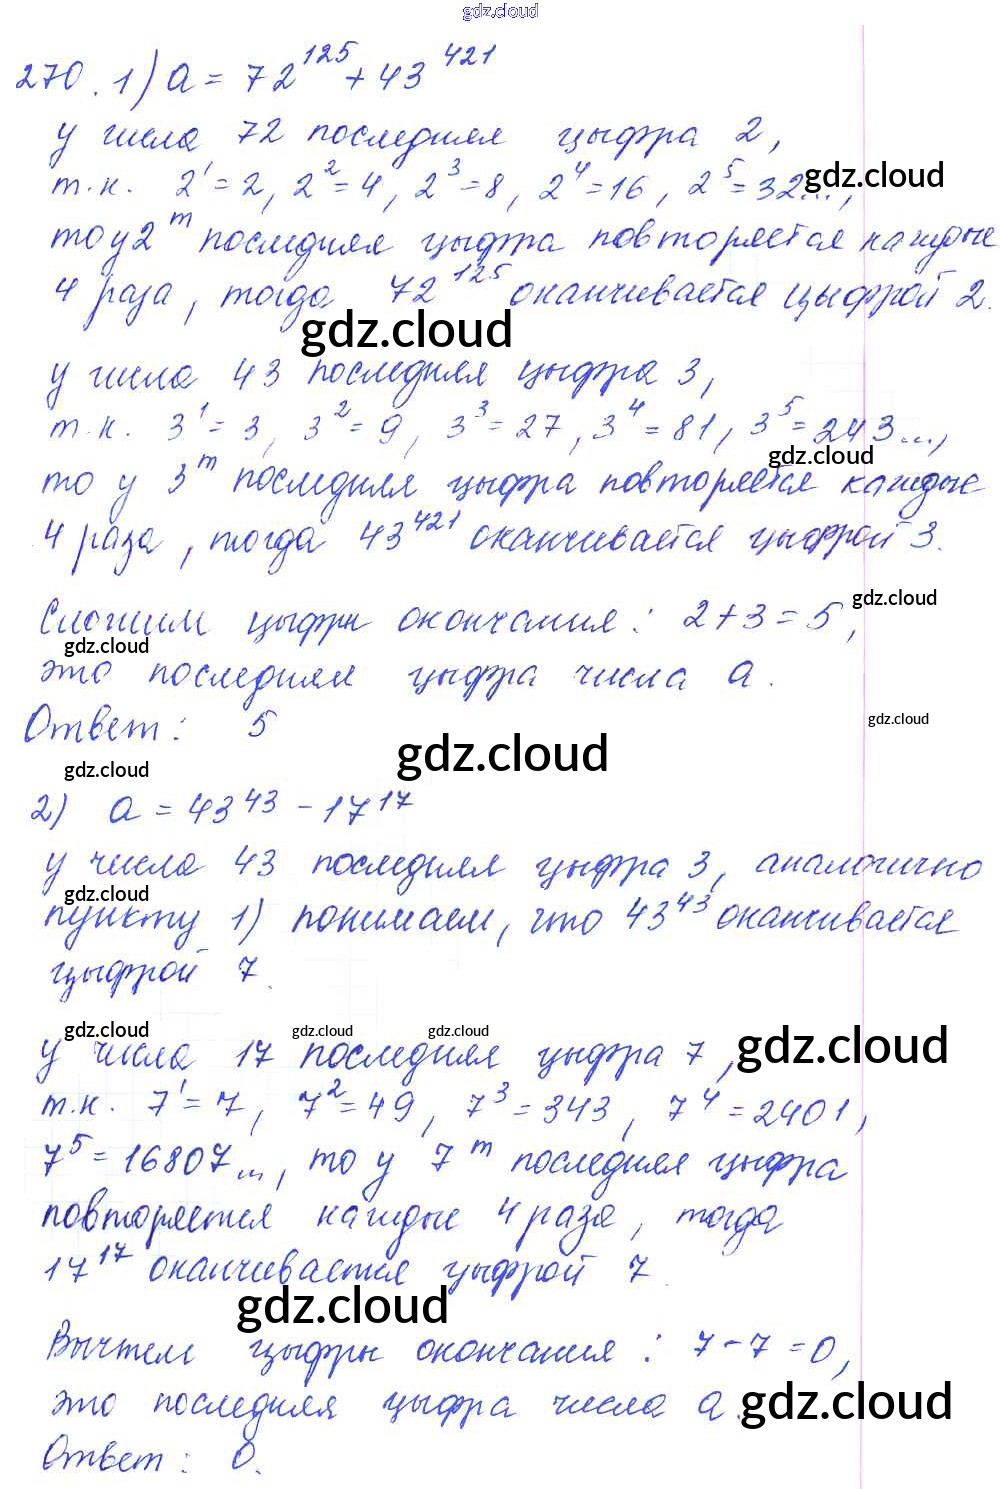 gdz.cloud
270. 1) a = 72^125 + 43^421
у числа 72 последняя цыфра 2,
т.к. 2^1 = 2, 2^2 = 4, 2^3 = 8, 2^4 = 16, 2^5 = 32..., gdz.cloud
то у 2^m последняя цыфра повторяется каждые
4 раза, тогда 72^125 оканчивается цыфрой 2.
gdz.cloud
у числа 43 последняя цыфра 3,
т.к. 3^1 = 3, 3^2 = 9, 3^3 = 27, 3^4 = 81, 3^5 = 243...,
gdz.cloud
то у 3^m последняя цыфра повторяется каждые
4 раза, тогда 43^421 оканчивается цыфрой 3.
gdz.cloud
Сложим цыфры окончания: 2 + 3 = 5,
gdz.cloud
это последняя цыфра числа a.
Ответ: 5
gdz.cloud
gdz.cloud
gdz.cloud
2) a = 43^43 - 17^17
у числа 43 последняя цыфра 3, аналогично
gdz.cloud
пункту 1) понимаем, что 43^43 оканчивается
цыфрой 7.
gdz.cloud gdz.cloud gdz.cloud gdz.cloud
у числа 17 последняя цыфра 7,
т.к. 7^1 = 7, 7^2 = 49, 7^3 = 343, 7^4 = 2401,
7^5 = 16807..., то у 7^m последняя цыфра
повторяется каждые 4 раза, тогда
17^17 оканчивается цыфрой 7.
gdz.cloud
Вычтем цыфры окончания: 7 - 7 = 0,
это последняя цыфра числа a.
gdz.cloud
Ответ: 0.